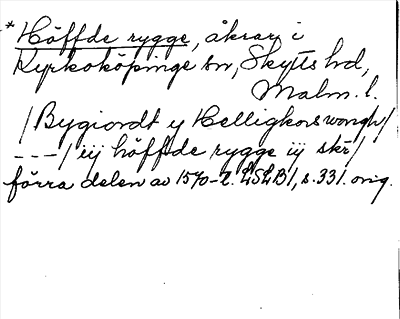 * Höffde rygge, åkrar i
Kyrkoköpinge sn, Skytts hd,
Malm. l.
/ Bygiordt y Helligkors wongh /
---/ iij höffde rygge iij skr /
förra delen av 1570-t. LSLB 1, s. 331. orig.